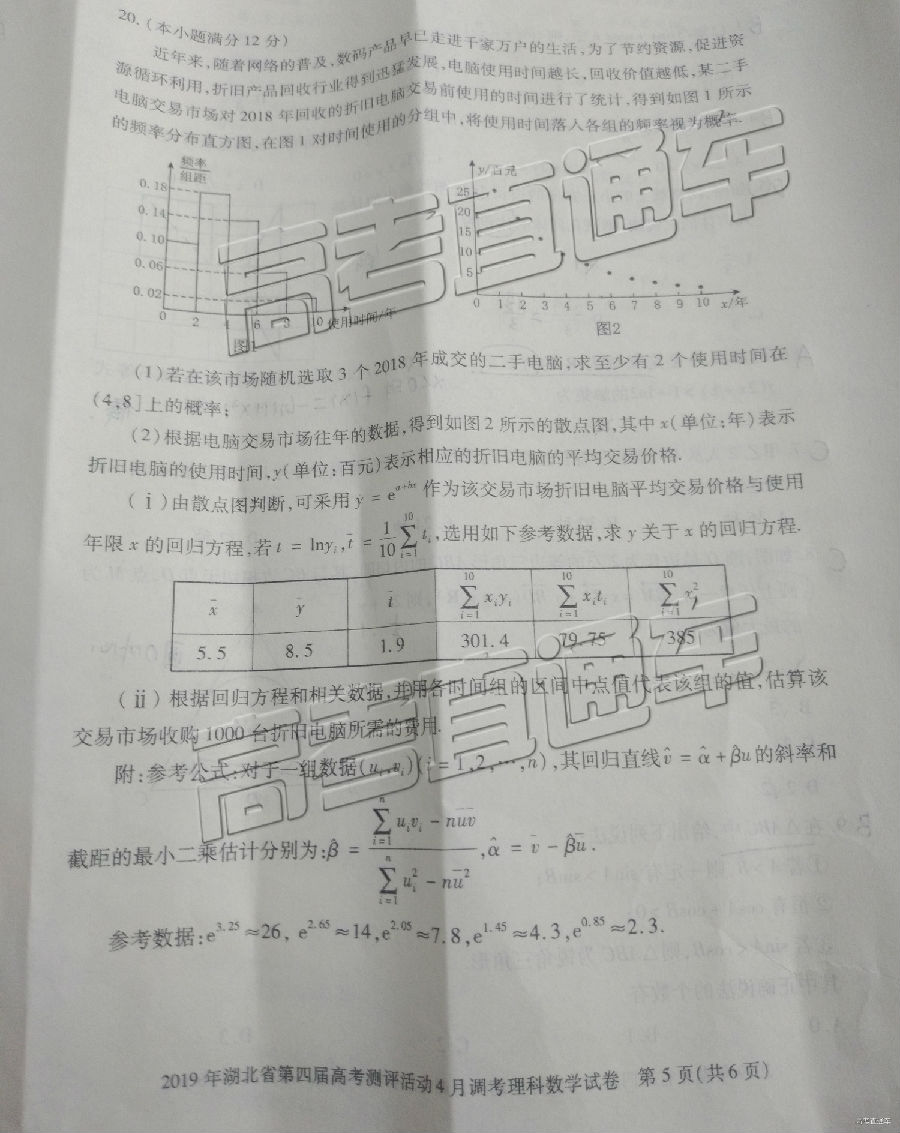 20.(本小题满分12分)
近年来,随着网络的普及,数码产品早已走进千家万户的生活,为了节约资源,促进资
源循环利用,折旧产品回收行业得到迅猛发展,电脑使用时间越长,回收价值越低,某二手
电脑交易市场对2018年回收的折旧电脑交易前使用的时间进行了统计,得到如图1所示
的频率分布直方图,在图1对时间使用的分组中,将使用时间落入各组的频率视为概率.
频率
组距
0.18
0.14
0.10
0.06
0.02
0 2 4 6 8 10 使用时间/年
图1
y/百元
25
20
15
10
5
0 1 2 3 4 5 6 7 8 9 10 x/年
图2
高考直通车
(1)若在该市场随机选取3个2018年成交的二手电脑,求至少有2个使用时间在
(4,8]上的概率;
(2)根据电脑交易市场往年的数据,得到如图2所示的散点图,其中x(单位:年)表示
折旧电脑的使用时间,y(单位:百元)表示相应的折旧电脑的平均交易价格.
(ⅰ)由散点图判断,可采用y=e^{a+bx}作为该交易市场折旧电脑平均交易价格与使用
年限x的回归方程,若t=lny_i,t̄=1/10 ∑_{i=1}^{10} t_i,选用如下参考数据,求y关于x的回归方程.
x̄ ȳ t̄ ∑_{i=1}^{10} x_i y_i ∑_{i=1}^{10} x_i t_i ∑_{i=1}^{10} x_i^2
5.5 8.5 1.9 301.4 79.75 385
(ⅱ)根据回归方程和相关数据,并用各时间组的区间中点值代表该组的值,估算该
交易市场收购1000台折旧电脑所需的费用.
高考直通车
附:参考公式:对于一组数据(u_i,v_i)(i=1,2,…,n),其回归直线v̂=α̂+β̂u的斜率和
截距的最小二乘估计分别为:β̂=(∑_{i=1}^{n} u_i v_i − nūv̄)/(∑_{i=1}^{n} u_i^2 − nū^2),α̂=v̄−β̂ū.
参考数据:e^{3.25}≈26,e^{2.65}≈14,e^{2.05}≈7.8,e^{1.45}≈4.3,e^{0.85}≈2.3.
2019年湖北省第四届高考测评活动4月调考理科数学试卷 第5页(共6页)